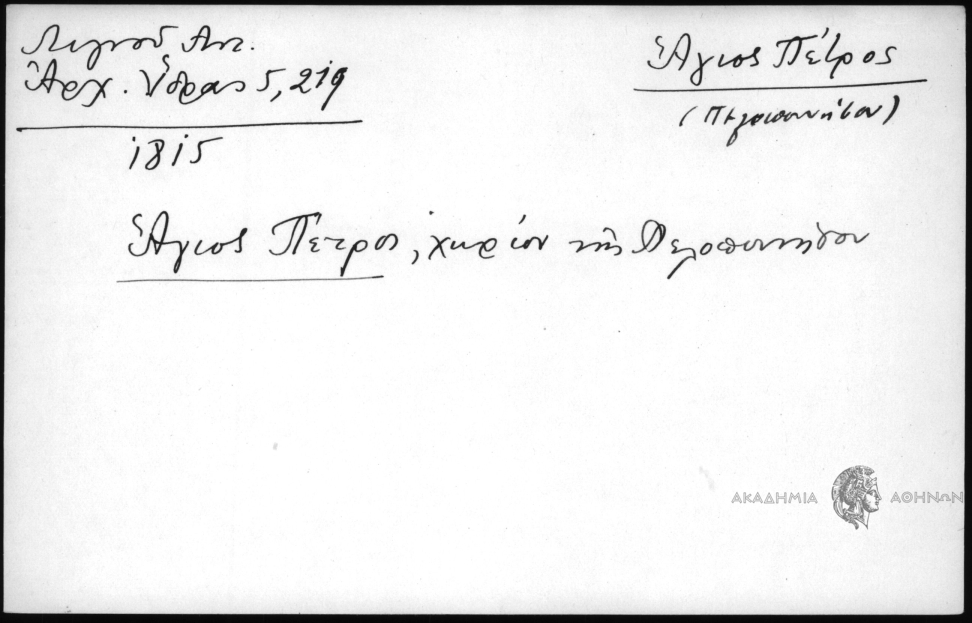 Λιγνοῦ Ἀντ.
Ἀρχ. Ὕδρας 5, 219
1815
Ἅγιος Πέτρος
(Πελοποννήσου)
Ἅγιος Πέτρος, χωρίον τῆς Πελοποννήσου
ΑΚΑΔΗΜΙΑ ΑΘΗΝΩΝ